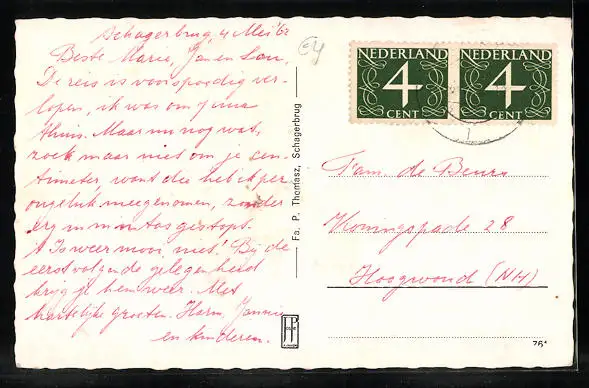 Schagerbrug, 4 Mei '62
Beste Marie, Jan en Lou,
De reis is voorspoedig ver-
lopen, ik was om 7 uur
thuis. Maar nu nog wat,
zoek maar niet om je cen-
timeter, want die heb ik per
ongeluk meegenomen, zonder
erg in mn tas gestopt.
't Is weer mooi, niet! Bij de
eerstvolgende gelegenheid
krijg je hem weer. Met
hartelijke groeten. Harm, Jannie
en kinderen.
Fa. P. Thomasz, Schagerbrug
NEDERLAND
4
CENT
NEDERLAND
4
CENT
Fam. de Beurs
Koningspade 28
Hoogwoud (NH)